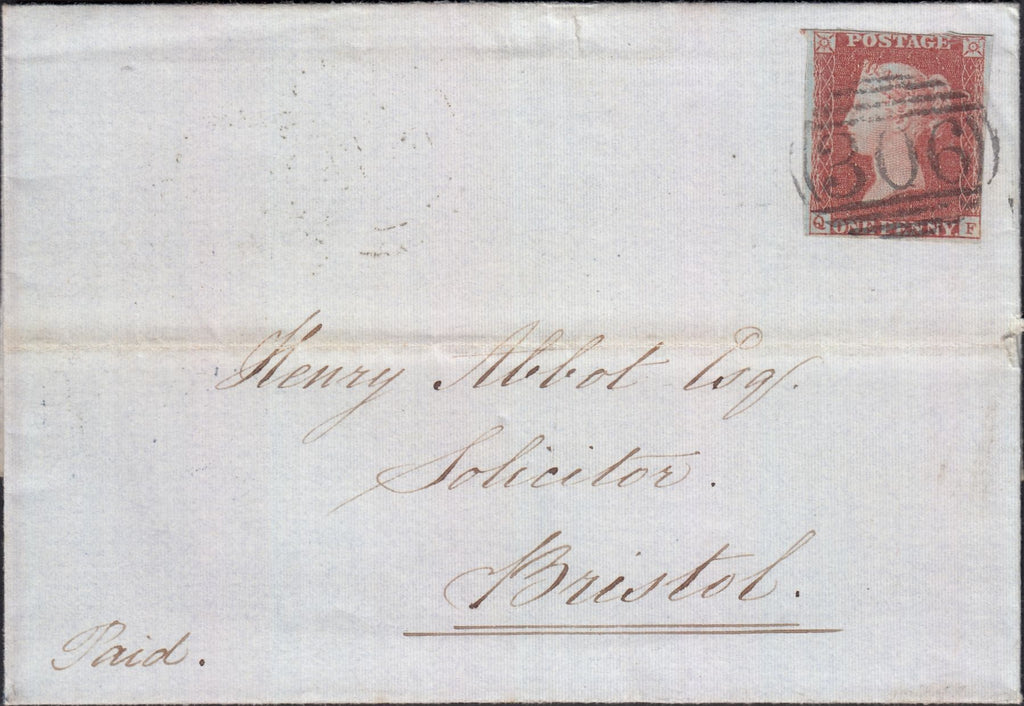 POSTAGE
306
Q ONE PENNY F
Henry Abbot Esq.
Solicitor.
Bristol.
Paid.